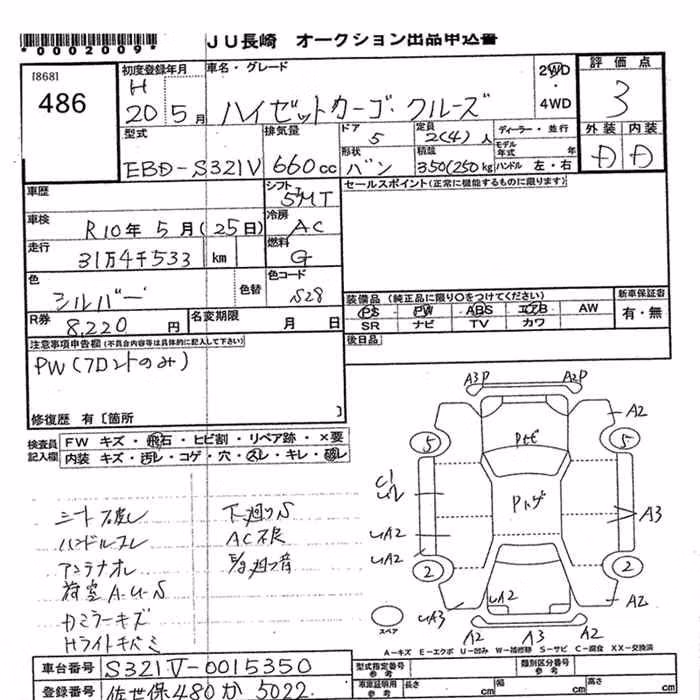 *0002009*
JU長崎 オークション出品申込書
[868]
486
初度登録年月
H
20 5月
車名・グレード
ハイゼットカーゴ・クルーズ
2WD
・
4WD
評価点
3
外装 内装
D D
型式
EBD-S321V
排気量
660cc
ドア
5
定員
2(4)人
ディーラー・並行
モデル年式 年
形状
バン
積載
350(250)kg
ハンドル 左・右
車歴
シフト
5MT
セールスポイント(正常に機能するものに限ります)
車検
R10年5月(25日)
冷房
AC
走行
31万4千533 km
燃料
G
色
シルバー
色替
色コード
S28
装備品(純正品に限り○をつけてください)
PS PW ABS エアB AW
SR ナビ TV カワ
新車保証書
有・無
R券
8,220円
名変期限
月 日
後日品
注意事項申告欄(不具合内容等は具体的に記入して下さい)
PW(フロントのみ)
修復歴 有〔箇所 〕
検査員記入欄
FW キズ・飛石・ヒビ割・リペア跡・×要
内装 キズ・汚レ・コゲ・穴・スレ・キレ・破レ
シート破レ
ハンドルスレ
アンテナオレ
荷室A・U・S
カミラーキズ
Hライトキバミ
下廻りS
AC不良
A3P A2P
A2
5 5
Pトビ
Pトゲ
C1
A3
UA2
UA2
2 2
UA3
UA2
A2
A2 A3 A2
スペア
A-キズ E-エクボ U-凹み W-補修跡 S-サビ C-腐食 XX-交換済
車台番号
S321V-0015350
型式指定番号
参考
類別区分番号
参考
登録番号
佐世保480か5022
車庫証明用
参考
長さ cm
幅 cm
高さ cm